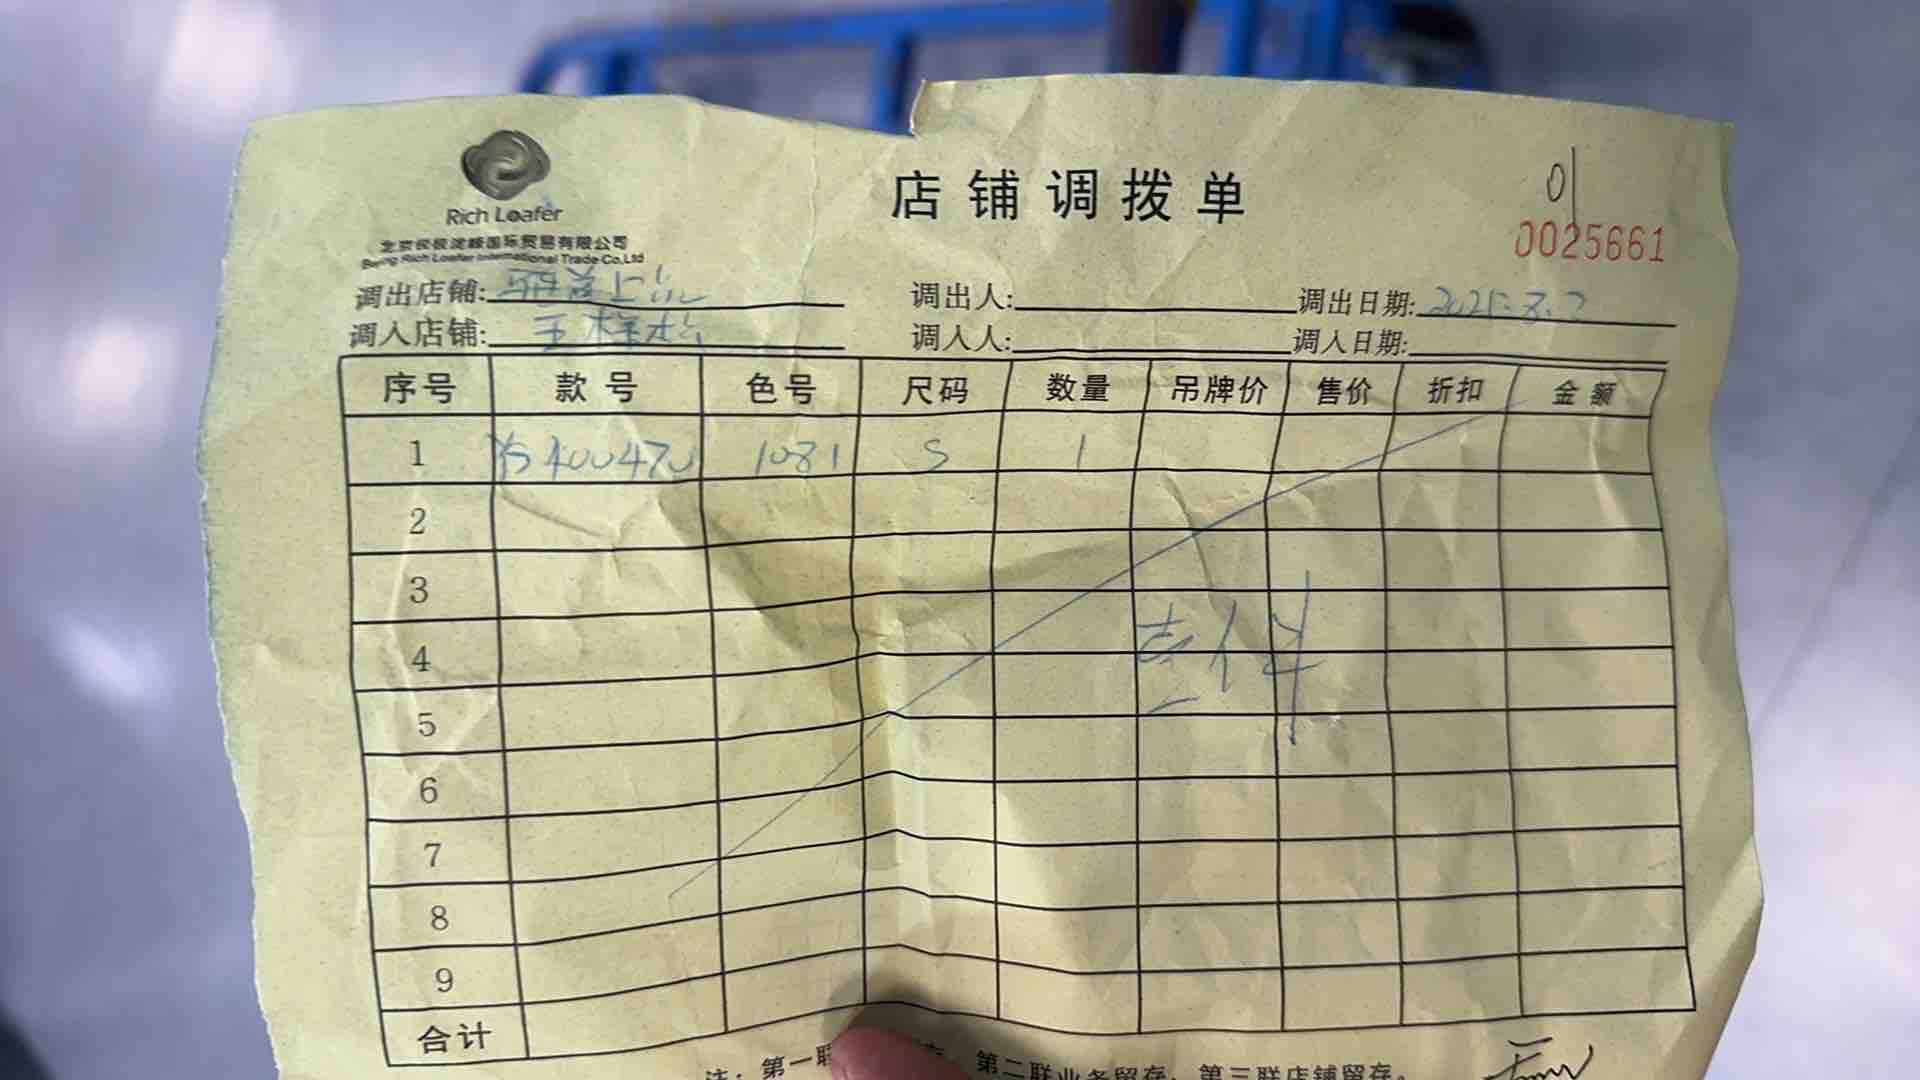 店铺调拨单
01
0025661
Rich Loafer
国际贸易有限公司
Rich Loafer International Trade Co,Ltd
调出店铺: 调出人: 调出日期:
调入店铺: 调入人: 调入日期:
序号 款号 色号 尺码 数量 吊牌价 售价 折扣 金额
1 1081 S 1
2
3
壹件
4
5
6
7
8
9
合计
注：第一联 第二联业务留存，第三联店铺留存。